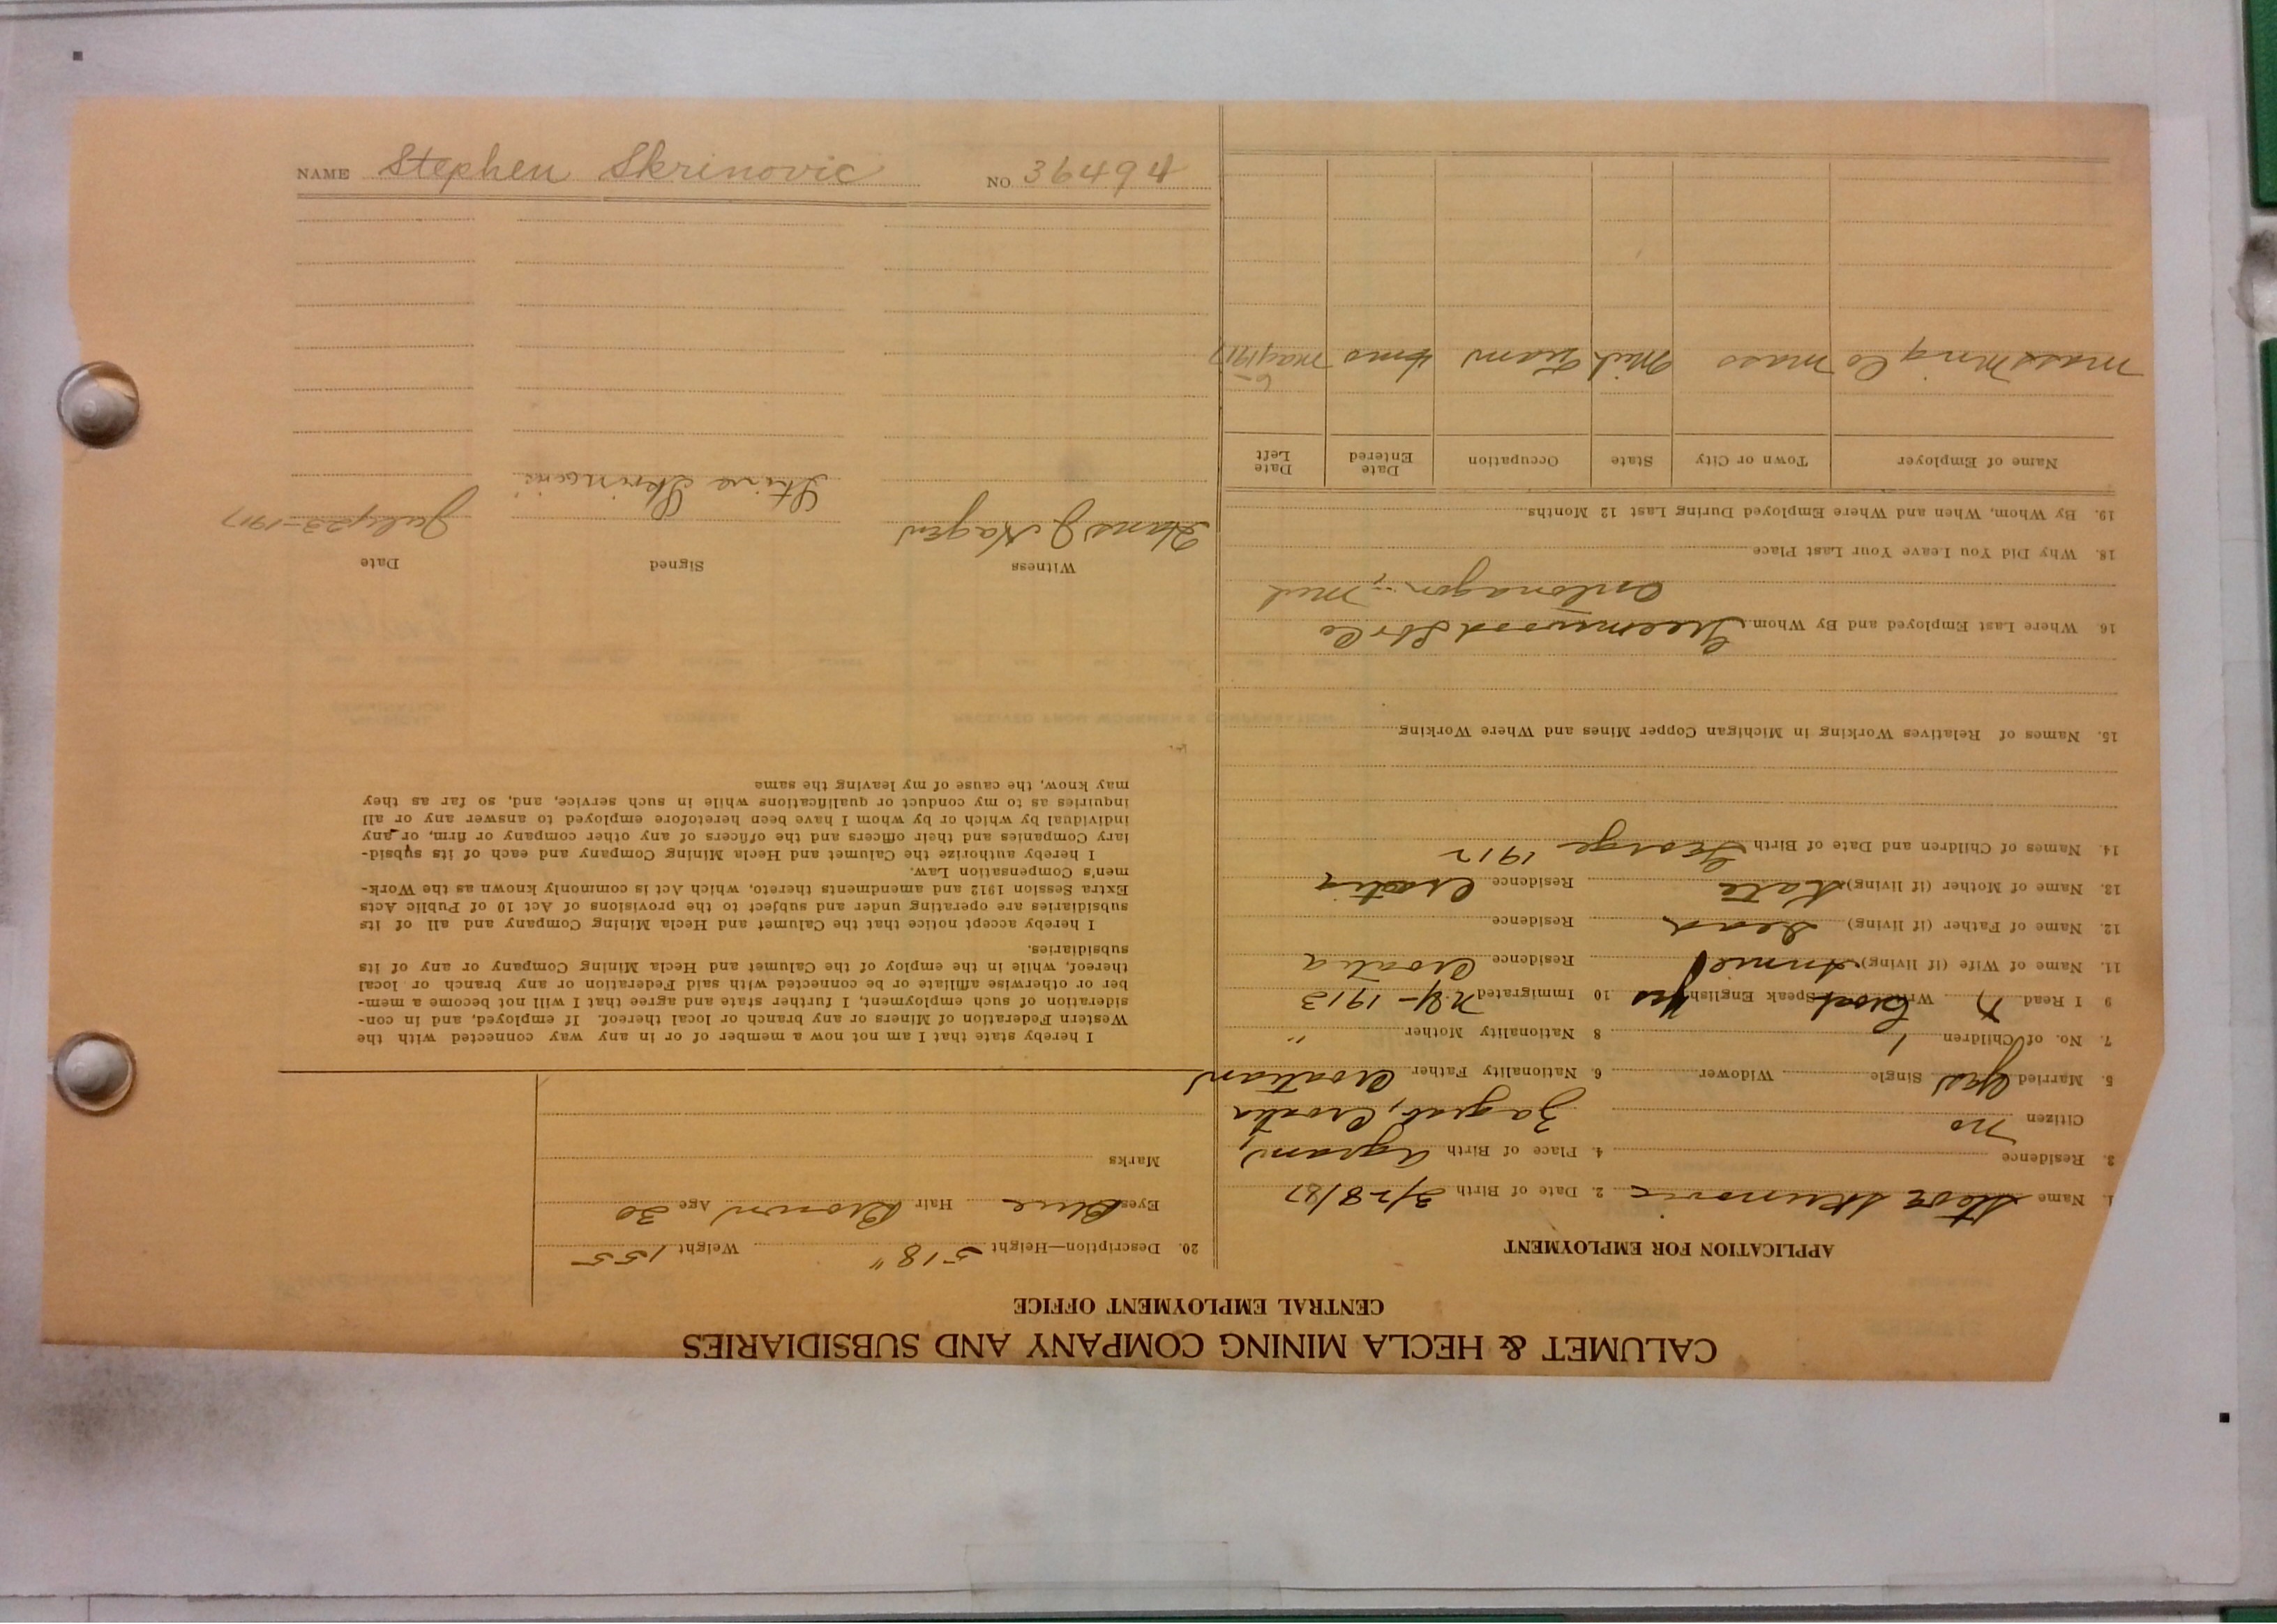 CALUMET & HECLA MINING COMPANY AND SUBSIDIARIES
CENTRAL EMPLOYMENT OFFICE
APPLICATION FOR EMPLOYMENT
1. Name Steve Skrinovic 2. Date of Birth 3/28/87
3. Residence 4. Place of Birth Agram,
Citizen no Zagreb, Croatia
5. Married Yes Single Widower 6. Nationality Father Croatian
7. No. of Children 1 8 Nationality Mother "
9 I Read Write Croat Speak English Yes 10 Immigrated N.Y-1913
11. Name of Wife (if living) Annie Residence Croatia
12. Name of Father (if living) Dead Residence
13. Name of Mother (if living) Kate Residence Croatia
14. Names of Children and Date of Birth George 1912
15. Names of Relatives Working in Michigan Copper Mines and Where Working
16. Where Last Employed and By Whom Greenwood Lbr Co
Ontonagon, Mich
18. Why Did You Leave Your Last Place
19. By Whom, When and Where Employed During Last 12 Months
Name of Employer Town or City State Occupation Date Entered Date Left
Mass Mining Co Mass Mich Tram mos May 1917
20. Description—Height 5'8" Weight 155
Eyes Blue Hair Brown Age 30
Marks
I hereby state that I am not now a member of or in any way connected with the
Western Federation of Miners or any branch or local thereof. If employed, and in con-
sideration of such employment, I further state and agree that I will not become a mem-
ber or otherwise affiliate or be connected with said Federation or any branch or local
thereof, while in the employ of the Calumet and Hecla Mining Company or any of its
subsidiaries.
I hereby accept notice that the Calumet and Hecla Mining Company and all of its
subsidiaries are operating under and subject to the provisions of Act 10 of Public Acts
Extra Session 1912 and amendments thereto, which Act is commonly known as the Work-
men's Compensation Law.
I hereby authorize the Calumet and Hecla Mining Company and each of its subsid-
iary Companies and their officers and the officers of any other company or firm, or any
individual by which or by whom I have been heretofore employed to answer any or all
inquiries as to my conduct or qualifications while in such service, and, so far as they
may know, the cause of my leaving the same
Witness Signed Date
Hans J Hagen Stive Skrinovic July 23-1917
NAME Stephen Skrinovic NO. 36494